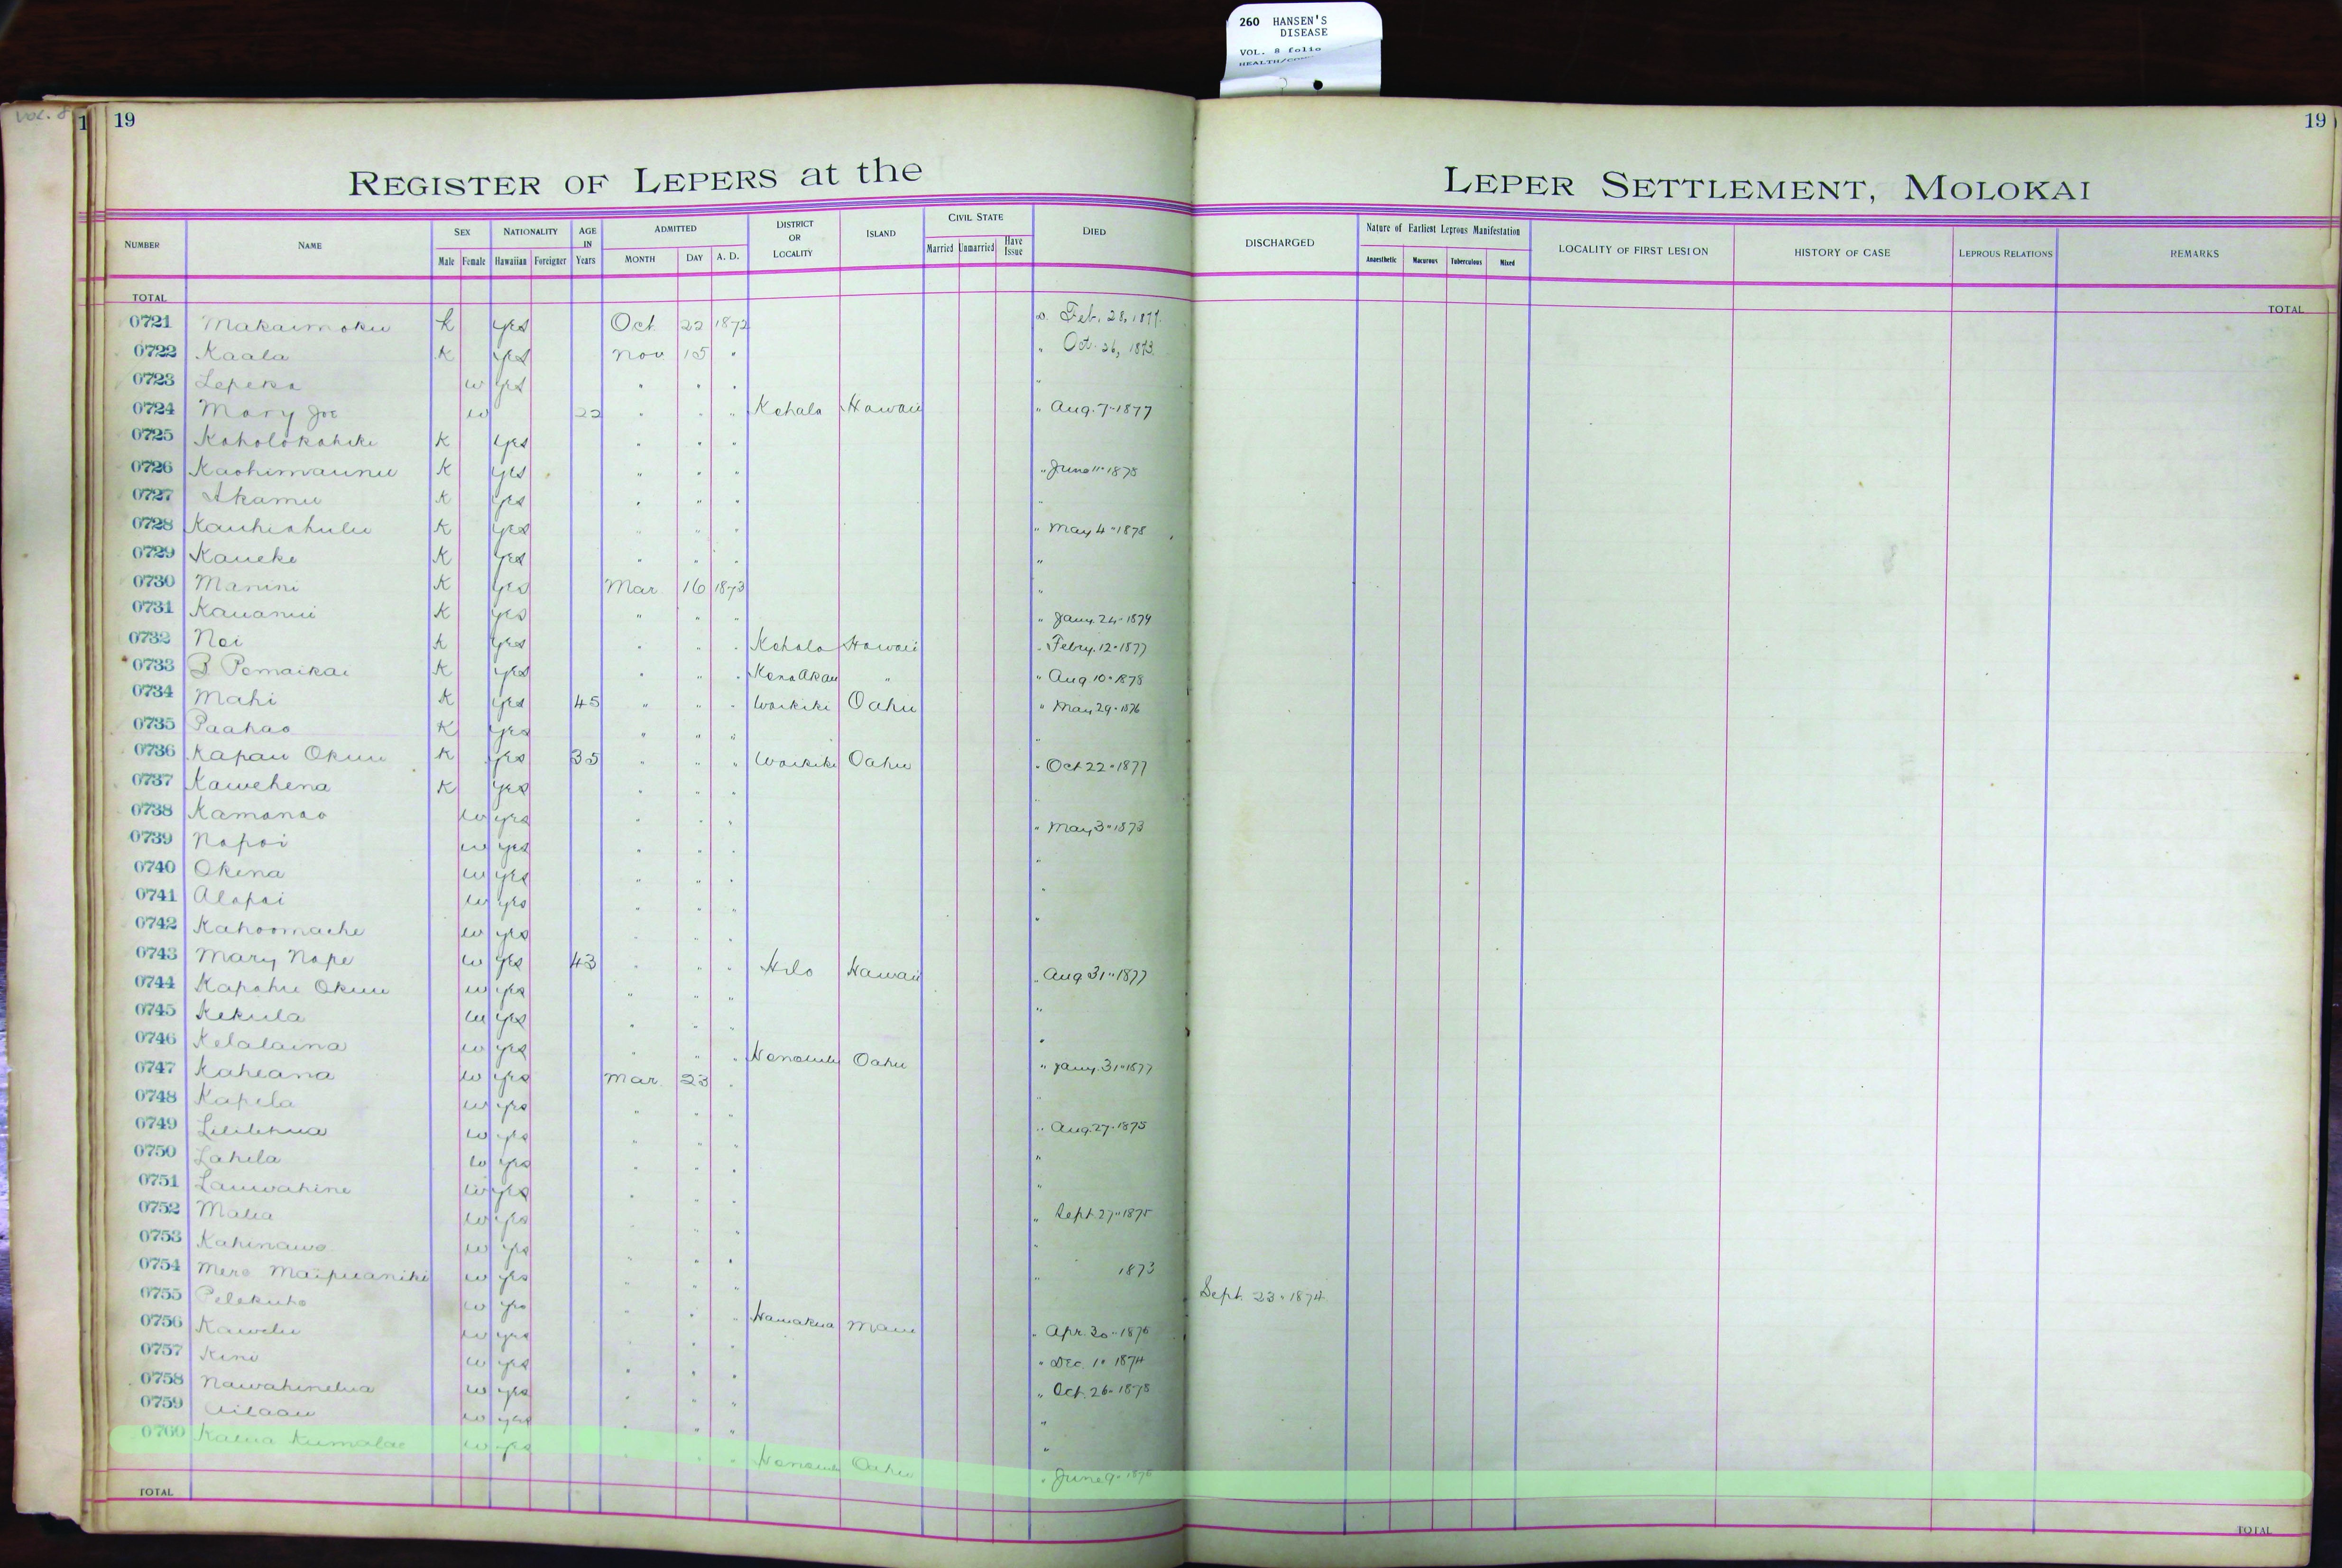 260 HANSEN'S
DISEASE
VOL. 8 folio
VOL. 8
1 19 19
REGISTER OF LEPERS at the LEPER SETTLEMENT, MOLOKAI
NUMBER NAME SEX Male Female NATIONALITY Hawaiian Foreigner AGE IN Years ADMITTED MONTH DAY A. D. DISTRICT OR LOCALITY ISLAND CIVIL STATE Married Unmarried Have Issue DIED DISCHARGED Nature of Earliest Leprous Manifestation Anaesthetic Macurous Tuberculous Mixed LOCALITY OF FIRST LESION HISTORY OF CASE LEPROUS RELATIONS REMARKS
TOTAL TOTAL
0721 Makaimoku k yes Oct. 22 1872 Feb. 28, 1877.
0722 Kaala K yes Nov 15 " " Oct. 26, 1873.
0723 Lepeka w yes " " " "
0724 Mary Joe w 22 " " " Kohala Hawaii " Aug. 7-1877
0725 Koholokahiki K yes " " "
0726 Kaohimaunu K yes " " " " June 11-1878
0727 Akamu K yes " " " "
0728 Kauhiahulu K yes " " " " May 4-1878
0729 Kaueke K yes " " " "
0730 Manini K yes Mar 16 1873 "
0731 Kauanui K yes " " " " Jany. 24-1879
0732 Noi K yes " " " Kohala Hawaii " Febry. 12-1877
0733 Pomaikai K yes " " " Kona Akau " " Aug 10-1878
0734 Mahi K yes 45 " " " Waikiki Oahu " May 29-1876
0735 Paahao K yes " " " "
0736 Kapau Okuu K yes 35 " " " Waikiki Oahu " Oct 22-1877
0737 Kawehena K yes " " " "
0738 Kamanao w yes " " " " May 3-1873
0739 Napoi w yes " " " "
0740 Okina w yes " " " "
0741 Alapai w yes " " " "
0742 Kahoomaehe w yes " " "
0743 Mary Nape w yes 43 " " " Hilo Hawaii " Aug 31-1877
0744 Kapahu Okuu w yes " " " "
0745 Kekula w yes " " " "
0746 Kelalaina w yes " " " Honolulu Oahu " Jany. 31-1877
0747 Kaheana w yes Mar. 23 " "
0748 Kapela w yes " " " " Aug. 27-1875
0749 Lililehua w yes " " " "
0750 Lahela w yes " " " "
0751 Lauwahine w yes " " " " Sept. 27-1875
0752 Malia w yes " " " "
0753 Kahinawe w yes " " " " 1873
0754 Mere Maipuaniki w yes " " " Sept. 23-1874
0755 Pelekuho w yes " " " Hamakua Maui " Apr. 30-1876
0756 Kawelu w yes " " " " Dec. 1-1874
0757 Kini w yes " " " " Oct. 26-1878
0758 Nawahinelua w yes " " " "
0759 Ailaau w yes " " " "
0760 Kalua Kumalae w yes " " " Honolulu Oahu " June 9-1876
TOTAL TOTAL